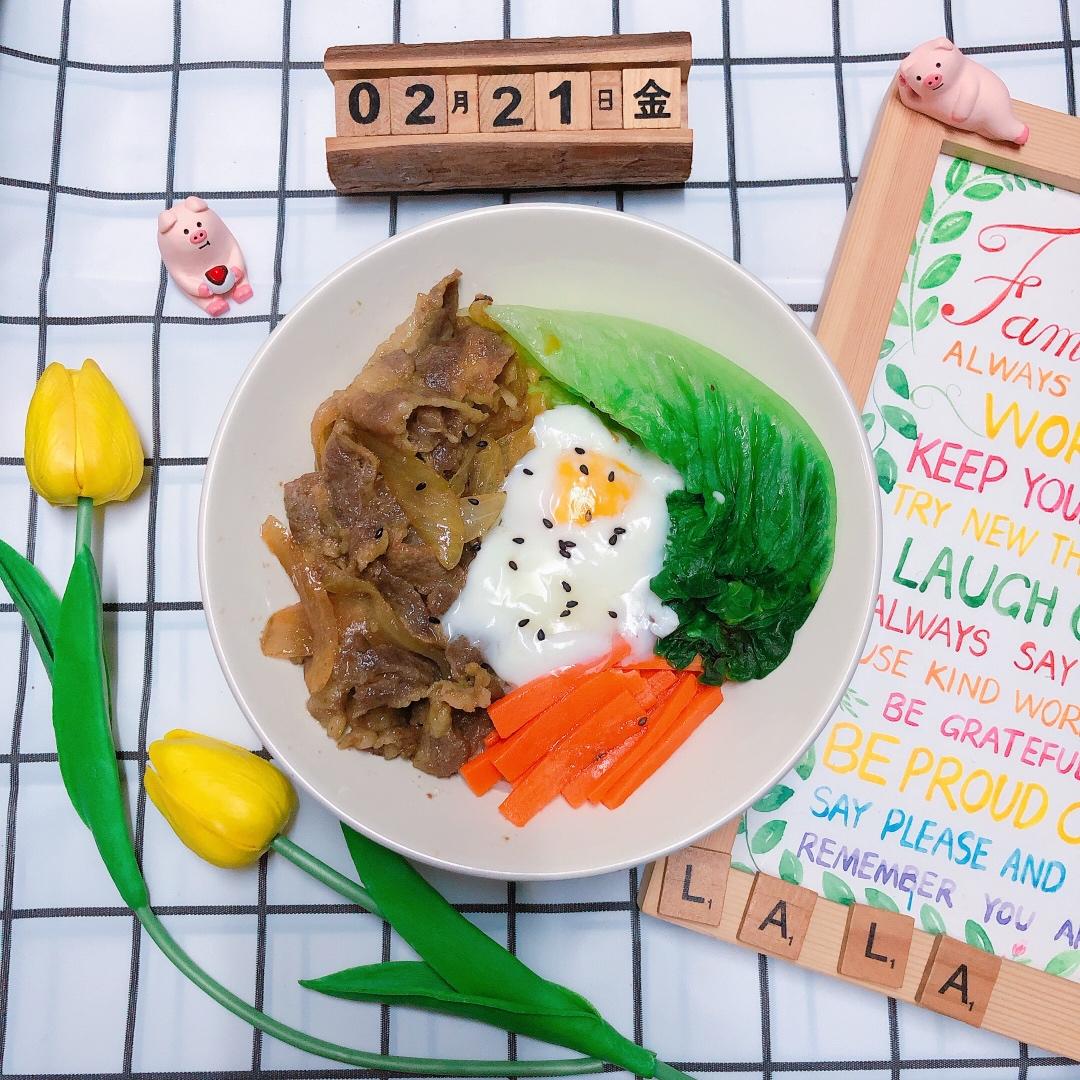 02月21日金
Fam
ALWAYS
WOR
KEEP YOU
TRY NEW TH
LAUGH
ALWAYS SAY
USE KIND WOR
BE GRATEFUL
BE PROUD O
SAY PLEASE AND
REMEMBER YOU A
L1 A1 L1 A1